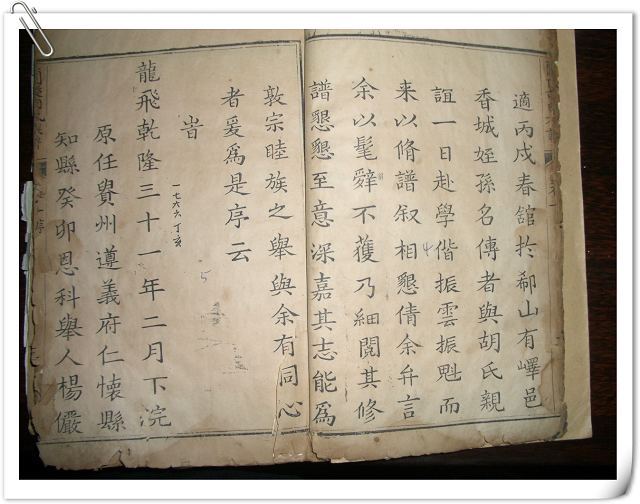 適丙戌春舘於郗山有嶧邑
香城姪孫名傳者與胡氏親
誼一日赴學偕振雲振魁而
来以脩譜叙相懇倩余弁言
余以髦辤不獲乃細閱其修
譜懇懇至意深嘉其志能為
敦宗睦族之舉與余有同心
者爰為是序云
旹
一七六六丁亥
龍飛乾隆三十一年二月下浣
原任貴州遵義府仁懷縣
知縣癸卯恩科舉人楊儼